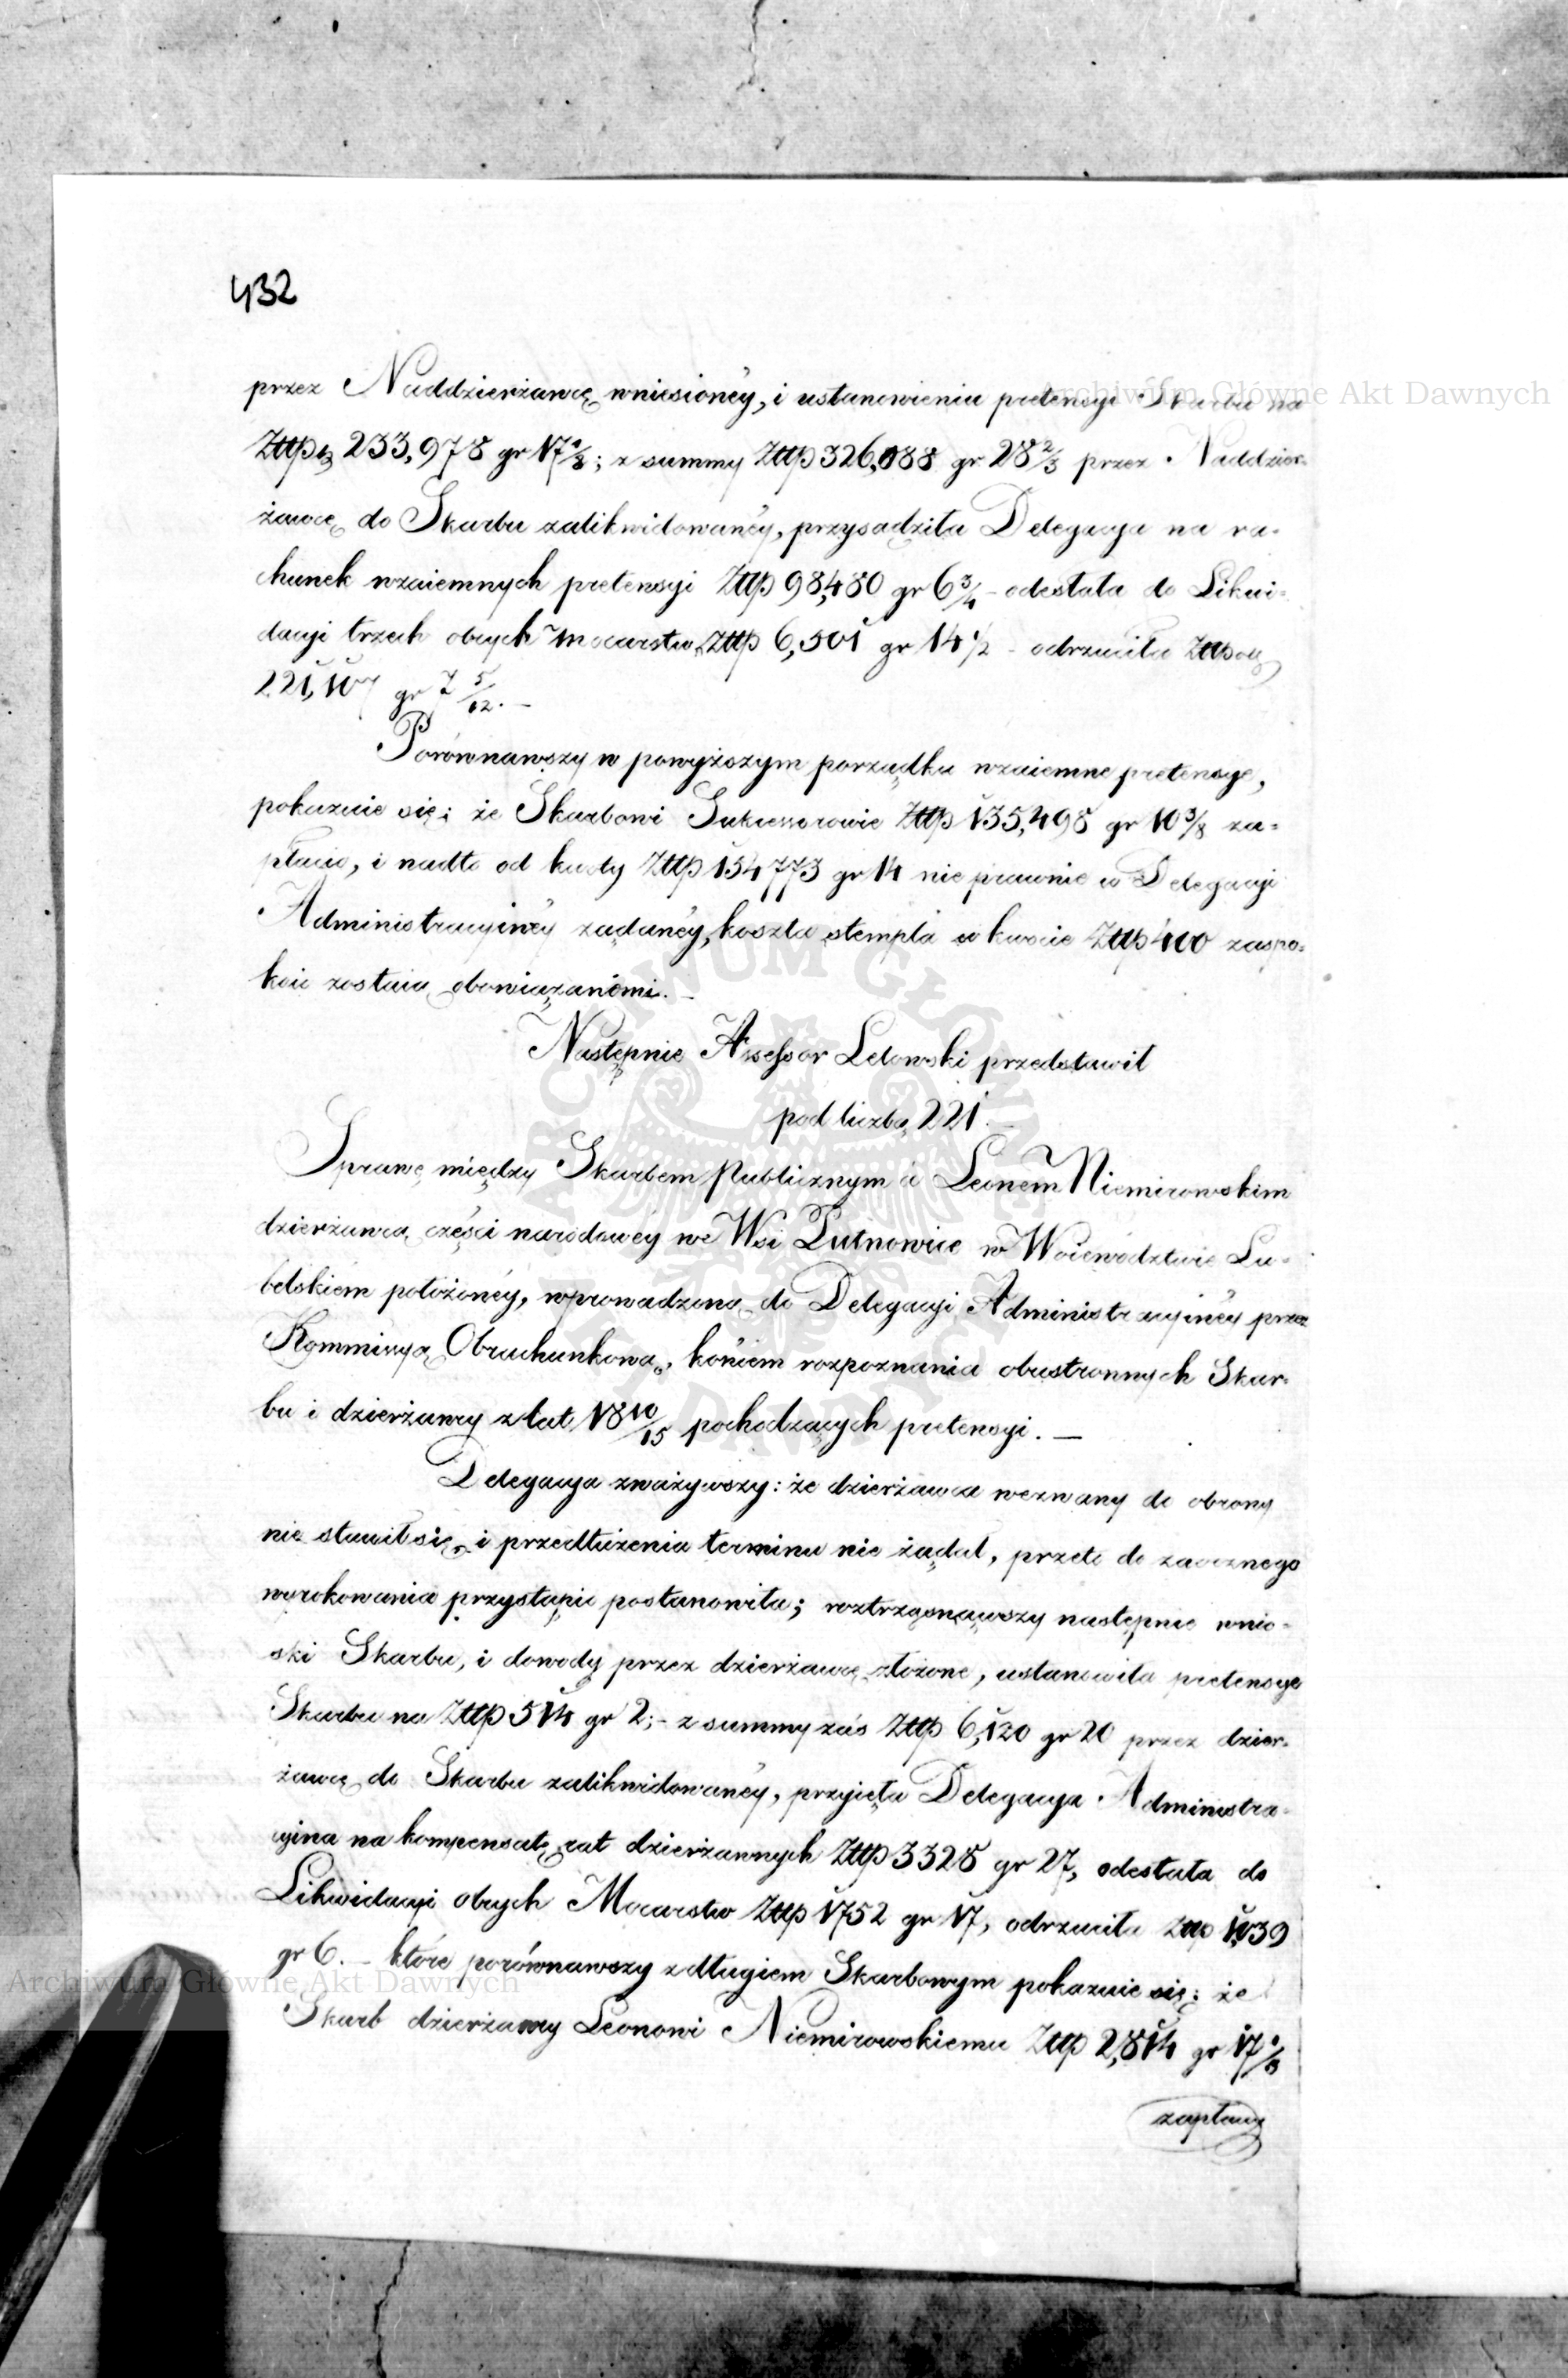 432
przez Naddzierżawcę wniesionéy, i ustanowieniu pretensyi Skarbu na
Złłp 233,978 gr 17 1/8; z summy Złłp 326,088 gr 28 2/3 przez Naddzier-
żawcę do Skarbu zalikwidowanéy, przysądziła Delegacya na ra-
chunek wzaiemnych pretensyi Złłp 98,480 gr 6 3/4 - odesłała do Likwi-
dacyi trzech obcych Mocarstw Złłp 6,501 gr 14 1/2 - odrzuciła
221,107 gr 7 5/12. -
Porównawszy w powyższym porządku wzaiemne pretensye,
pokazuie się: że Skarbowi Sukcessorowie Złłp 135,498 gr 10 3/8 za-
płacić, i nadto od kwoty Złłp 154773 gr 14 nieprawnie w Delegacyi
Administracyinéy żądanéy, koszta stempla w kwocie Złłp 400 zaspo-
koić zostaią obowiązanémi. -
Następnie Assessor Letowski przedstawił
pod liczbą 221. -
Sprawę między Skarbem Publicznym a Leonem Niemirowskim
dzierżawcą części narodowéy we Wsi Putnowice w Woiewództwie Lu-
belskiém położonéy, wprowadzoną do Delegacyi Administracyinéy przez
Kommissyą Obrachunkową, końcem rozpoznania obustronnych Skar-
bu i dzierżawcy z lat 1810/15 pochodzących pretensyi. -
Delegacya zważywszy: że dzierżawca wezwany do obrony
nie stawił się, i przedłużenia terminu nie żądał, przeto do zaocznego
wyrokowania przystąpić postanowiła; roztrząsnąwszy następnie wnio-
ski Skarbu, i dowody przez dzierżawcę złożone, ustanowiła pretensye
Skarbu na Złłp 514 gr 2; - z summy zaś Złłp 6,120 gr 20 przez dzier-
żawcę do Skarbu zalikwidowanéy, przyięła Delegacya Administra-
cyina na kompensatę rat dzierżawnych Złłp 3328 gr 27, odesłała do
Likwidacyi obcych Mocarstw Złłp 1752 gr 17, odrzuciła Złłp 1,039
gr 6. - które porównawszy z długiem Skarbowym pokazuie się: że
Skarb dzierżawcy Leonowi Niemirowskiemu Złłp 2,814 gr 17 1/3
zapłacić
Archiwum Główne Akt Dawnych
Archiwum Główne Akt Dawnych
ARCHIWUM GŁÓWNE AKT DAWNYCH